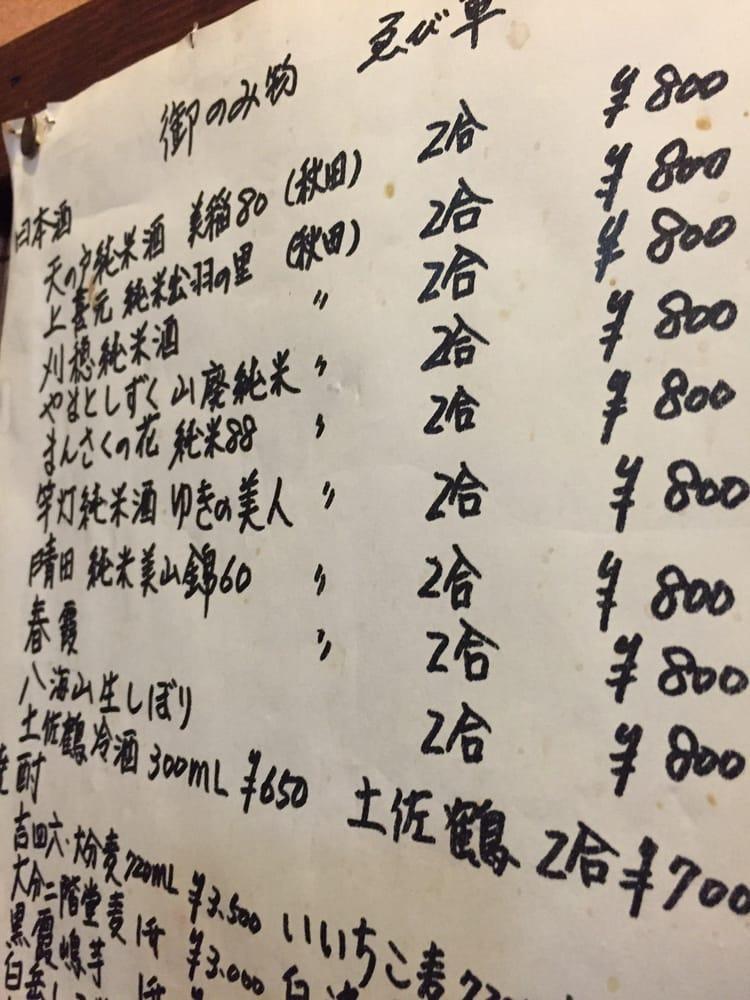 御のみ物
日本酒
天の戸純米酒 美稲80 (秋田) 2合 ¥800
上喜元 純米出羽の里 (秋田) 2合 ¥800
刈穂純米酒 〃 2合 ¥800
やまとしずく 山廃純米 〃 2合 ¥800
まんさくの花 純米88 〃 2合 ¥800
竿灯純米酒 ゆきの美人 〃 2合 ¥800
晴田 純米美山錦60 〃 2合 ¥800
春霞 〃 2合 ¥800
八海山生しぼり 2合 ¥800
土佐鶴冷酒 300mL ¥650 土佐鶴 2合 ¥700
焼酎
吉四六・大分麦720mL ¥3.500 いいちこ麦
大分二階堂麦 1升 ¥3.000
黒霞嶋芋 1升